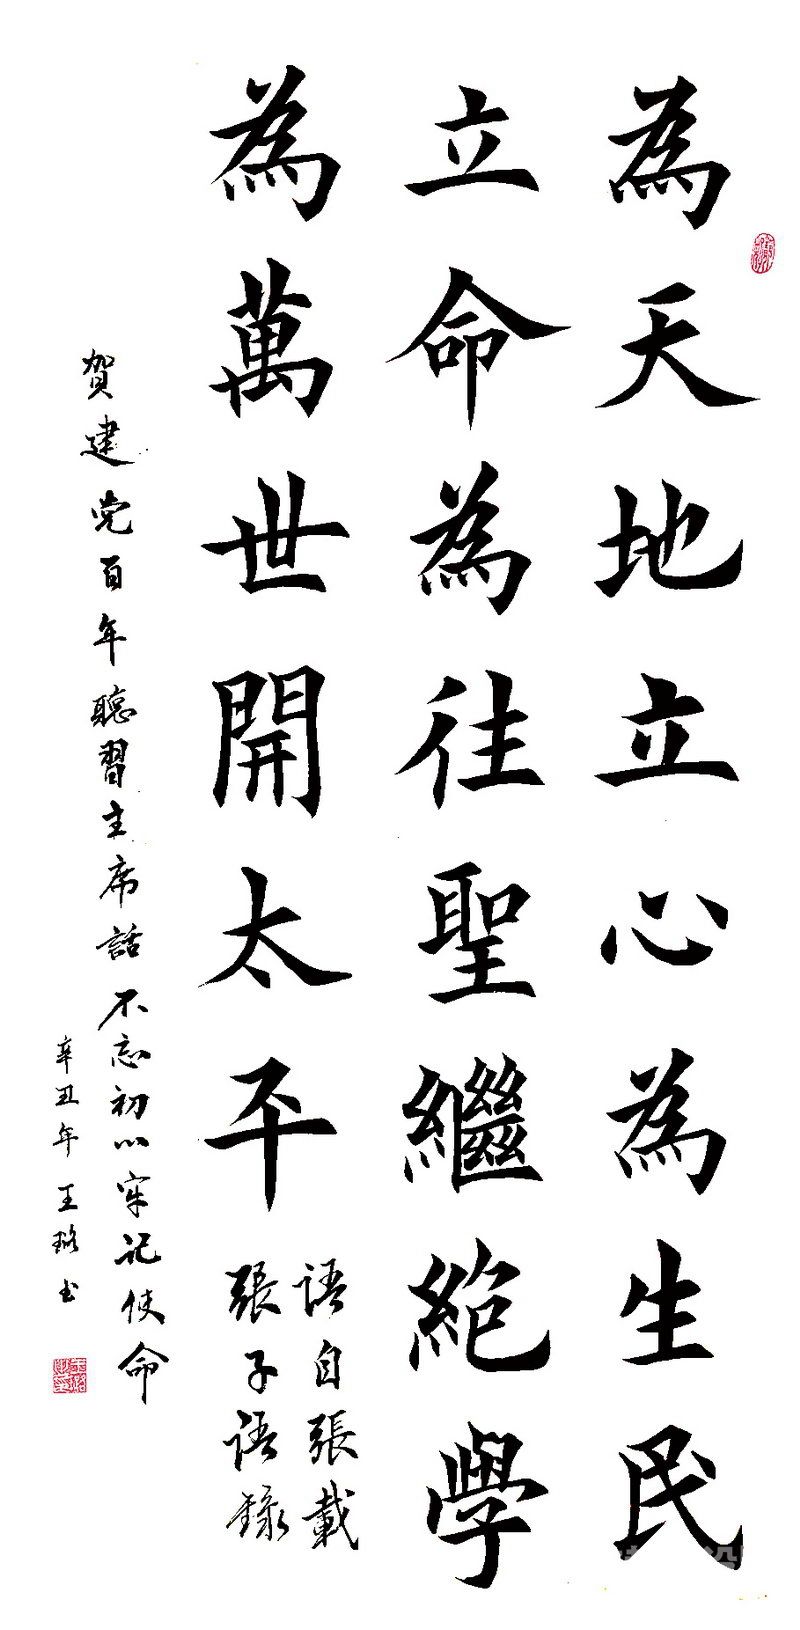 為天地立心為生民
立命為往聖繼絶學
為萬世開太平
語自張載
張子語錄
贺建党百年聽習主席話不忘初心牢记使命
辛丑年王璐书